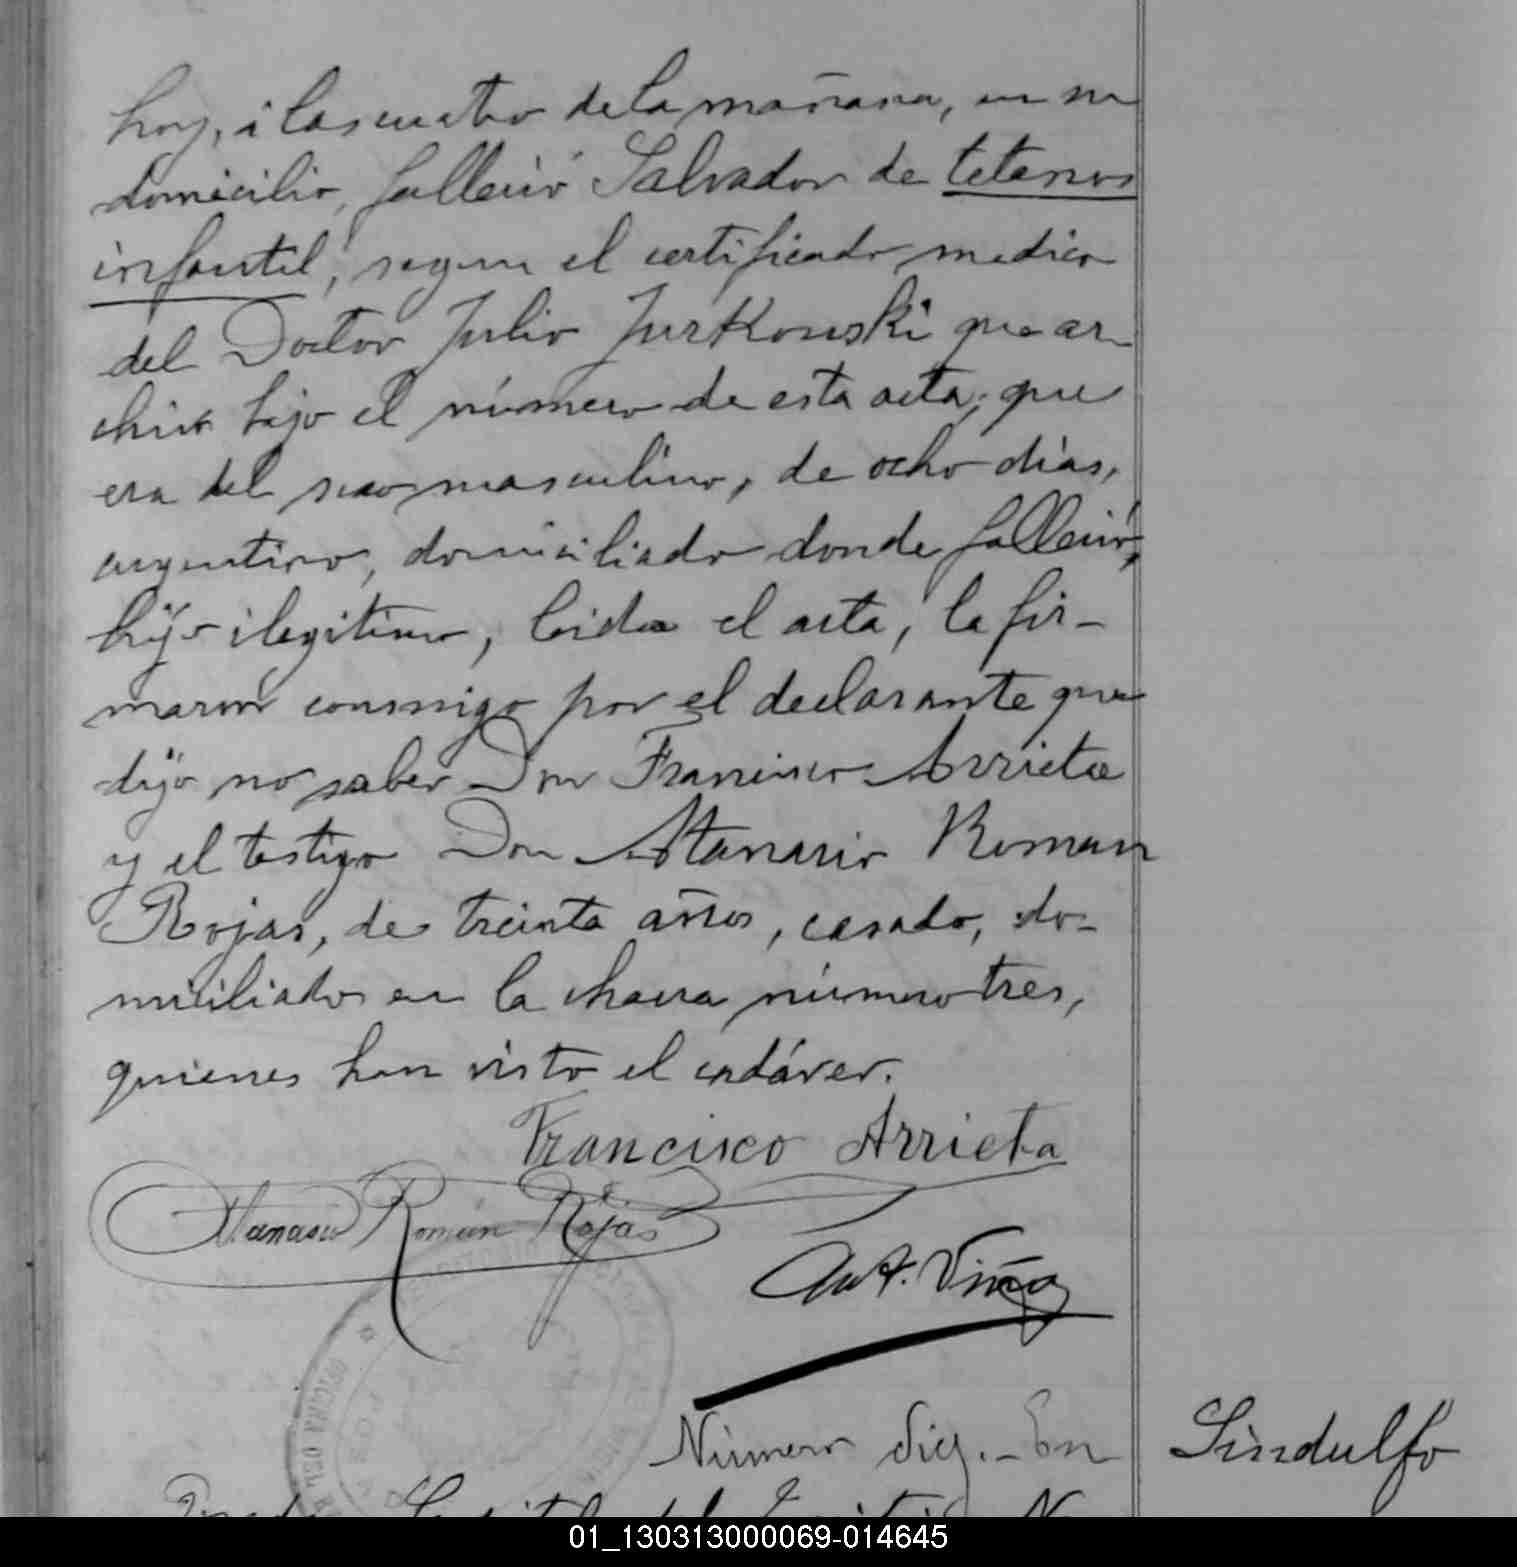 hoy, á las cuatro de la mañana, en su
domicilio, falleció Salvador de tetanos
infantil, segun el certificado medico
del Doctor Julio Jurkouski que ar-
chivo bajo el número de esta acta; que
era del sexo masculino, de ocho dias,
argentino, domiciliado donde falleció,
hijo ilegitimo, leida el acta, la fir-
maron conmigo por el declarante que
dijo no saber Don Francisco Arrieta
y el testigo Don Atanasio Roman
Rojas, de treinta años, casado, do-
miciliado en la chacra número tres,
quienes han visto el cadáver.
Francisco Arrieta
Atanasio Román Rojas
Ant. Viña
OFICINA DEL
Número Sig.- En
Sindulfo
01_130313000069-014645